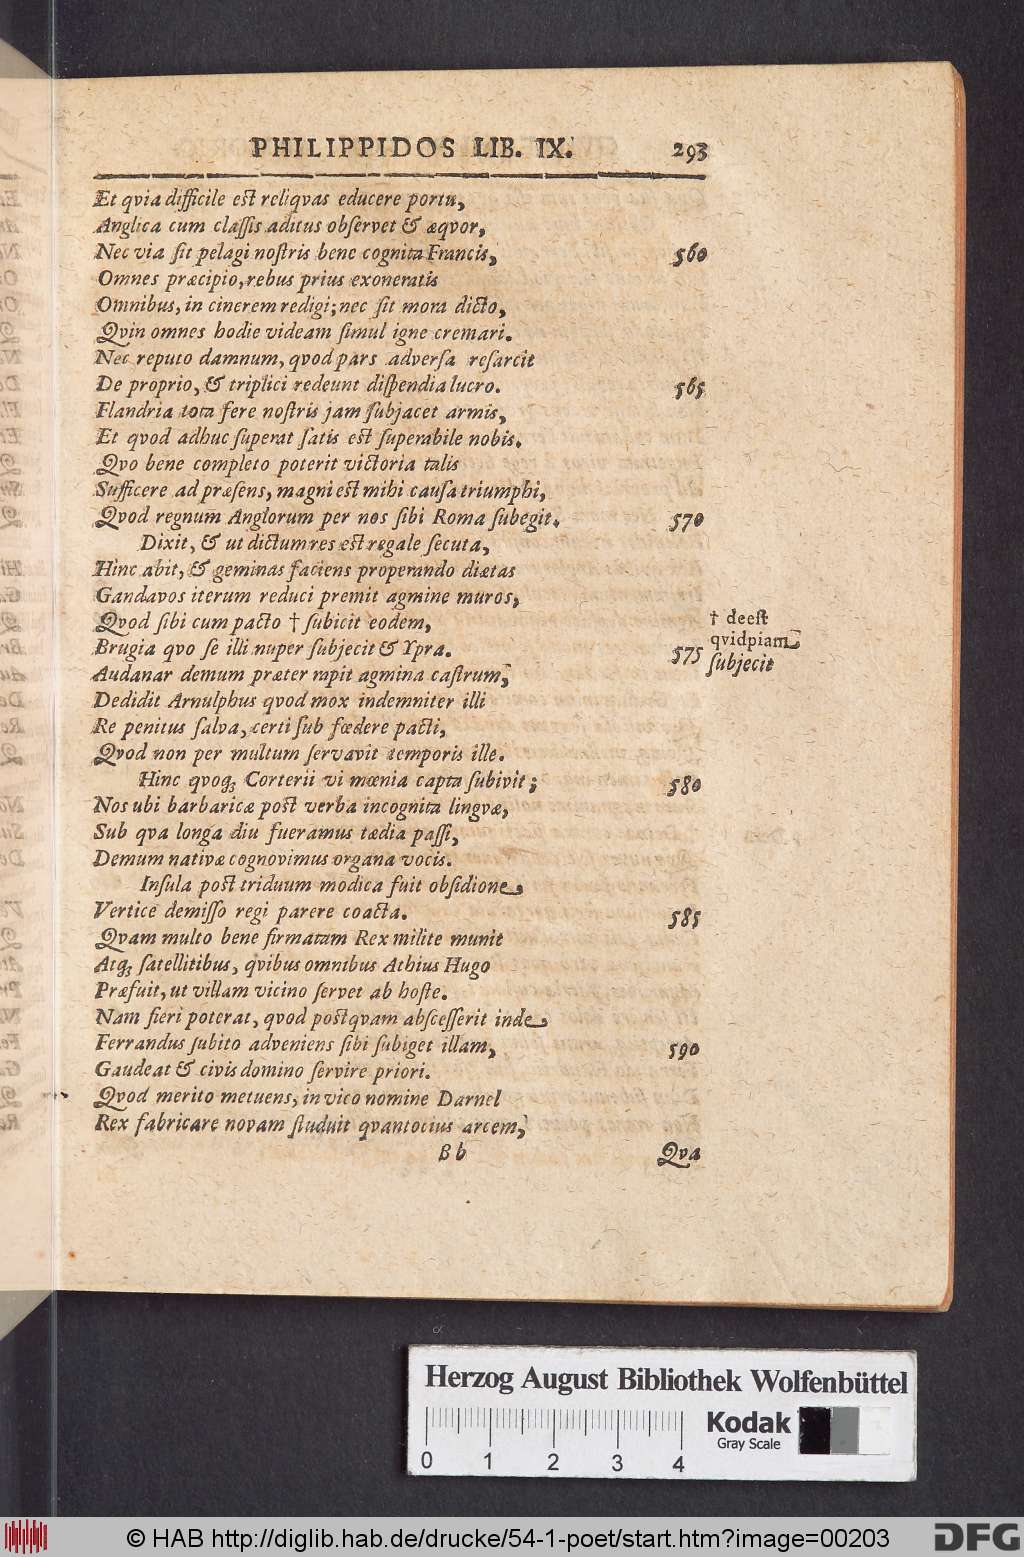 PHILIPPIDOS LIB. IX. 293
Et qvia difficile est reliqvas educere portu,
Anglica cum classis aditus observet & æqvor,
Nec via sit pelagi nostris bene cognita Francis, 560
Omnes præcipio, rebus prius exoneratis
Omnibus, in cinerem redigi; nec sit mora dicto,
Qvin omnes hodie videam simul igne cremari.
Nec reputo damnum, qvod pars adversa resarcit
De proprio, & triplici redeunt dispendia lucro. 565
Flandria tota fere nostris jam subjacet armis,
Et qvod adhuc superat satis est superabile nobis.
Qvo bene completo poterit victoria talis
Sufficere ad præsens, magni est mihi causa triumphi,
Qvod regnum Anglorum per nos sibi Roma subegit. 570
Dixit, & ut dictum res est regale secuta,
Hinc abit, & geminas faciens properando diætas
Gandavos iterum reduci premit agmine muros,
Qvod sibi cum pacto † subicit eodem,
† deest
qvidpiam
subjecit
Brugia qvo se illi nuper subjecit & Ypra. 575
Audanar demum præter rapit agmina castrum,
Dedidit Arnulphus qvod mox indemniter illi
Re penitus salva, certi sub fœdere pacti,
Qvod non per multum servavit temporis ille.
Hinc qvoqꝫ Corterii vi mœnia capta subivit; 580
Nos ubi barbaricæ post verba incognita lingvæ,
Sub qva longa diu fueramus tædia passi,
Demum nativæ cognovimus organa vocis.
Insula post triduum modica fuit obsidione,
Vertice demisso regi parere coacta. 585
Qvam multo bene firmatam Rex milite munit
Atqꝫ satellitibus, qvibus omnibus Athius Hugo
Præfuit, ut villam vicino servet ab hoste.
Nam fieri poterat, qvod postqvam abscesserit inde
Ferrandus subito adveniens sibi subiget illam, 590
Gaudeat & civis domino servire priori.
Qvod merito metuens, in vico nomine Darnel
Rex fabricare novam studuit qvantocius arcem,
Bb Qva
Herzog August Bibliothek Wolfenbüttel
0 1 2 3 4
Kodak
Gray Scale
© HAB http://diglib.hab.de/drucke/54-1-poet/start.htm?image=00203
DFG